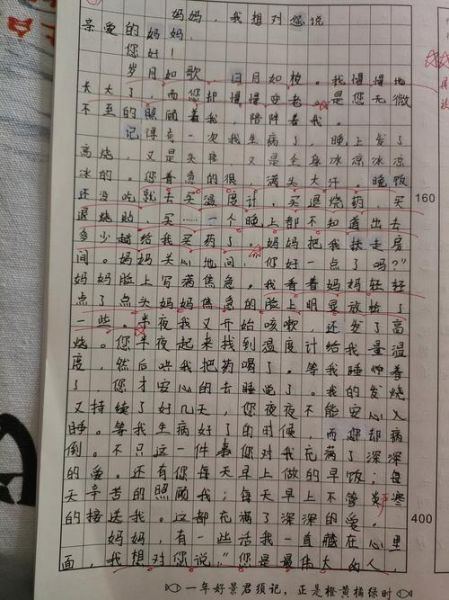 妈妈，我想对您说
亲爱的妈妈，
您好！
岁月如歌，日月如梭。我慢慢地
长大了，而您却慢慢变老。是您无微
不至的照顾着我，陪伴着我。
记得有一次我生病了，晚上发了
高烧，又是头疼，又是全身冰凉冰凉
冰的。您着急的很，满头大汗，晚饭
还没吃就去买温度计，买退烧药，买
退烧贴，买……一个晚上都不知道出去
多少趟给我买药了。妈妈把我扶走房
间。妈妈关心地问："你好一点了吗？"
妈妈脸上写满焦急。我看着妈妈轻轻
点了点头妈妈焦急的脸上明显放松了
一些。半夜我又开始咳嗽，还发了高
烧。您半夜起来找到温度计给我量温
度，然后哄我把药喝了。等我睡着
了，您才安心的去睡觉了。我的发烧
又持续了好几天，您夜夜不能安心入
睡。等我生病好了的时候，而您却病
倒。不只这一件着您对我充满了深深
的爱。还有您每天早上做的早饭；每
天辛苦的照顾我；每天早上不管炎寒
的接送我。这都充满了深深的爱。
妈妈，有一些话我一直藏在心里
面，我想对你说："您是最伟大的人，
一年好景君须记，正是橙黄橘绿时
160
400